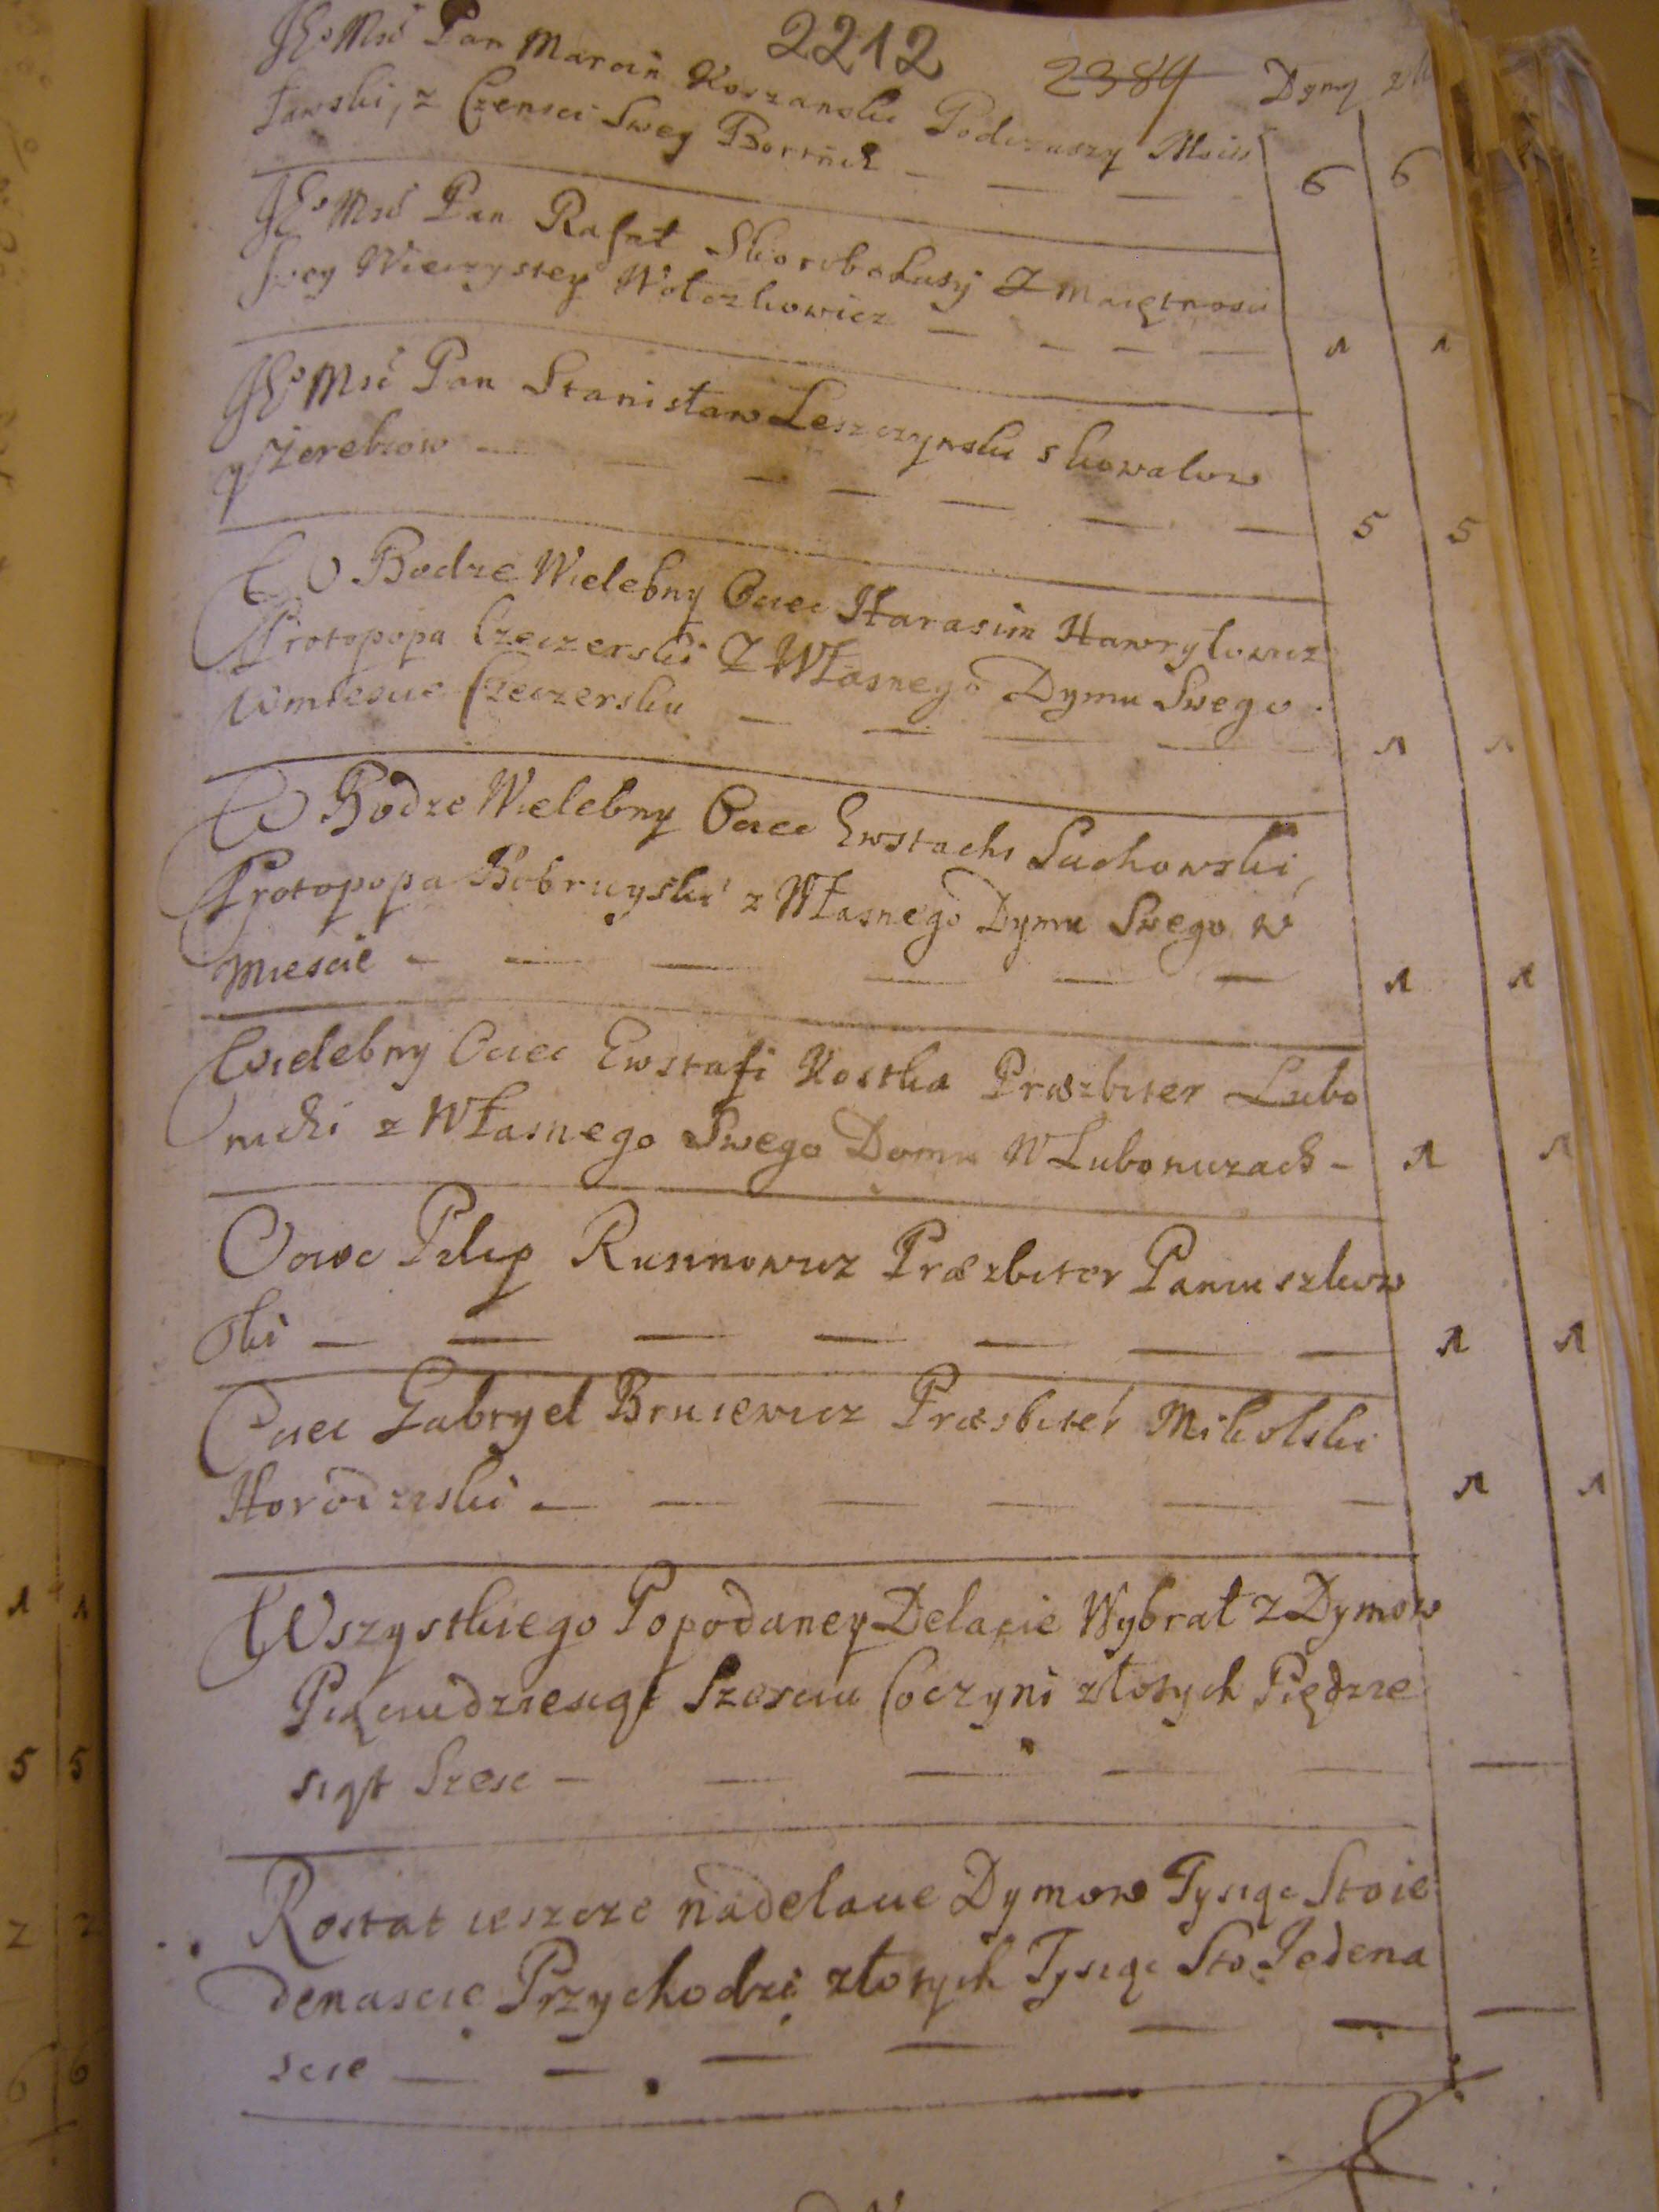 2212
2384
Dymy zł
JE͠o Mść Pan Marcin Korzanski Podczaszy Mści
sławski, z Czensci Swey Bortnik
6 6
JE͠o Mść Pan Rafał Skorobohaty Z Maiętnosci
Swey Wieczystey Wołczkowicz
1 1
JE͠o Mść Pan Stanisław Leszczynski s kowalow
y Żerebcow
5 5
W Bodze Wielebny Ociec Harasim Hawryłowicz
Protopopa Czeczerski Z Własnego Dymu Swego
W miescie Czeczersku
1 1
W Bodze Wielebny Ociec Ewstachi Suchowski,
Protopopa Bobruyski z Własnego Dymu Swego w
Miescie
1 1
Wielebny Ociec Ewstafi Kostka Præzbiter Lubo
nicki z Własnego Swego Domu W Luboniczach
1 1
Ociec Filip Rusinowicz Præzbiter Paniuszkow
ski
1 1
Ociec Gabryel Bruiewicz Præsbiter Mikolski
Horodziski
1 1
Wszystkiego Popodaney Delacie Wybrał z Dymow
Pięciudziesiąt Szesciu Coczyni złotych Piędzie
siąt Szesc
Rostat ieszcze nadelacie Dymow Tysiąc Stoie
denascie Przychodzi złotych Tysiąc Sto Jedena
scie
1 1
5 5
2 2
6 6